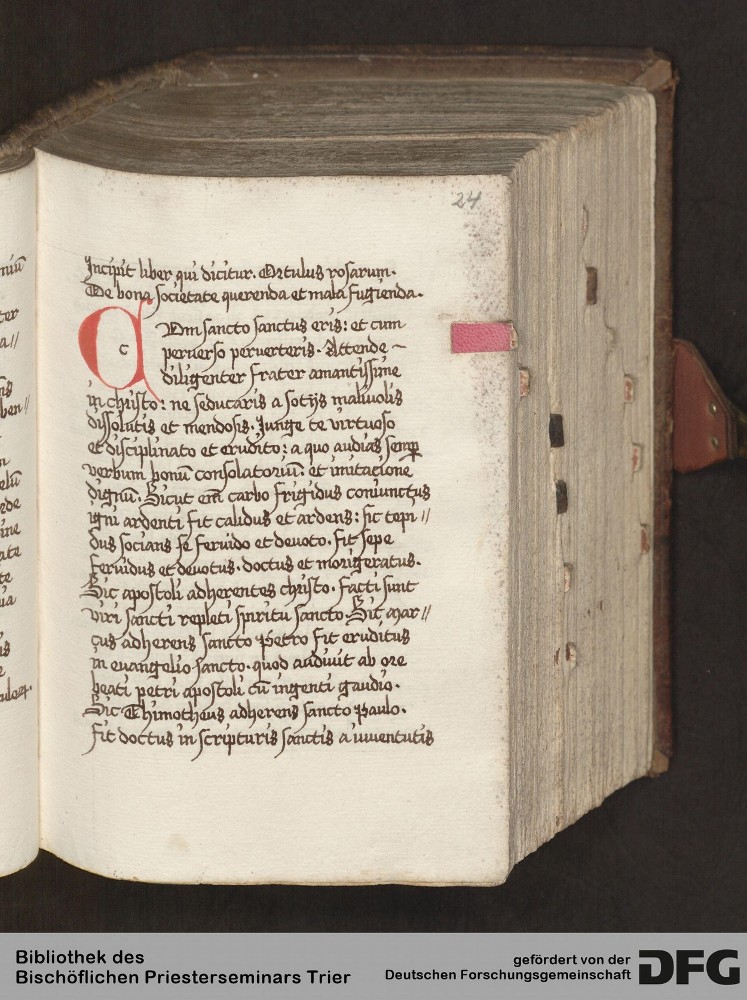 24
Incipit liber qui dicitur. Ortulus rosarum.
De bona societate querenda et mala fugienda.
CUm sancto sanctus eris: et cum
peruerso peruerteris. Attende ~
diligenter frater amantissime
in christo: ne seducaris a sotijs maliuolis
dissolutis et mendosis. Iunge te virtuoso
et disciplinato et erudito: a quo audias semꝑ
verbum bonū consolatoriū: et imitacione
dignū. Sicut em̄ carbo frigidus coniunctus
igni ardenti fit calidus et ardens: sic tepi //
dus socians se feruido et deuoto. fit sepe
feruidus et deuotus. doctus et morigeratus.
Sic apostoli adherentes christo. facti sunt
viri sancti repleti spiritu sancto. Sic Mar //
cus adherens sancto Petro fit eruditus
in euangelio sancto. quod audiuit ab ore
beati petri apostoli cū ingenti gaudio.
Sic Thimotheus adherens sancto Paulo.
fit doctus in scripturis sanctis a iuuentutis
Bibliothek des
Bischöflichen Priesterseminars Trier
gefördert von der
Deutschen Forschungsgemeinschaft
DFG